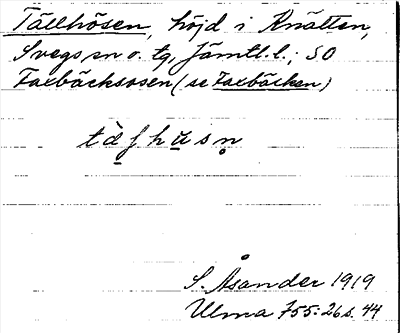 Tällhösen, höjd i Knätten,
Svegs sn o. tg, Jämtl. l.; SO
Faxbäcksosen (se Faxbäcken)
tä̀ʃhusn̥
S. Åsander 1919
Ulma 755:26 s. 44